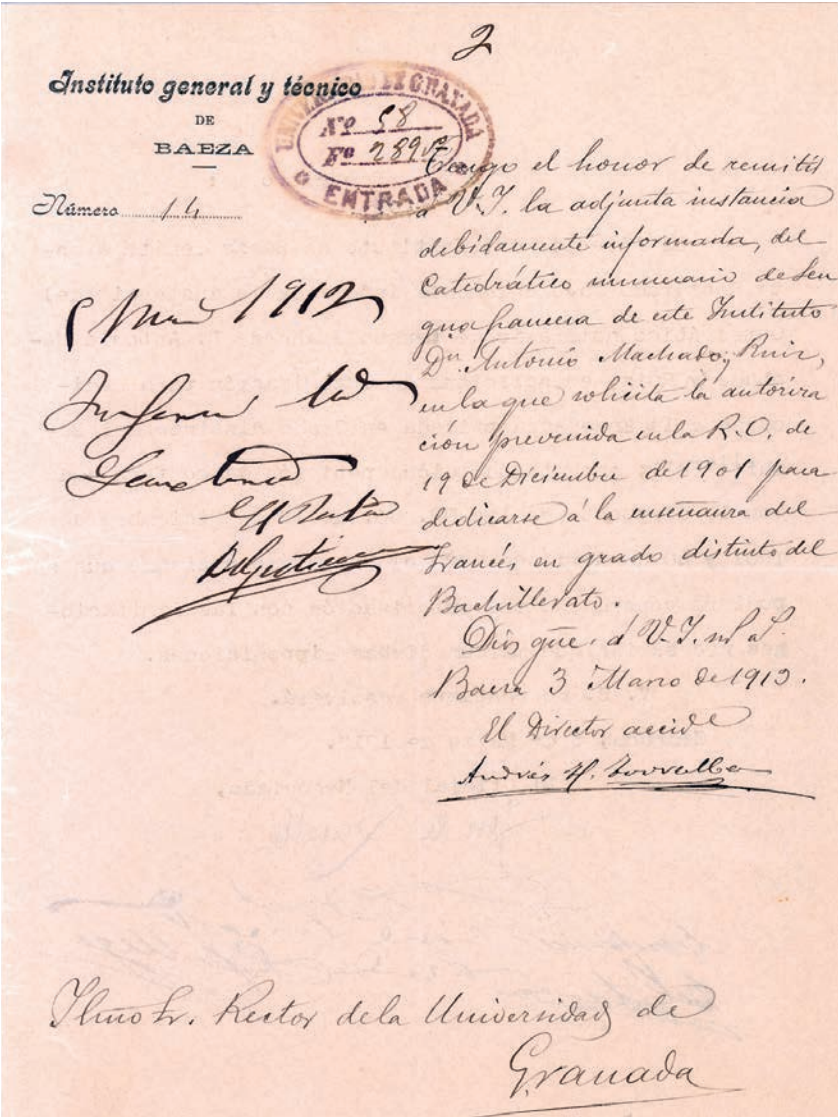 2
Instituto general y técnico
DE
BAEZA
Número 14
UNIVERSIDAD DE GRANADA
Nº 58
Fº 289
ENTRADA
Tengo el honor de remitir
a V.I. la adjunta instancia
debidamente informada, del
Catedrático numerario de Len
gua francesa de este Instituto
Dn. Antonio Machado y Ruiz,
en la que solicita la autoriza
ción prevenida en la R.O. de
19 de Diciembre de 1901 para
dedicarse á la enseñanza del
Francés en grado distinto del
Bachillerato.
Dios gūe. á V.I. ms as.
Baeza 3 Marzo de 1913.
El Director accidl
Andrés H. Torralba
5 1912
Informe la
Secretaría
El Rector
Ilmo Sr. Rector de la Universidad de
Granada